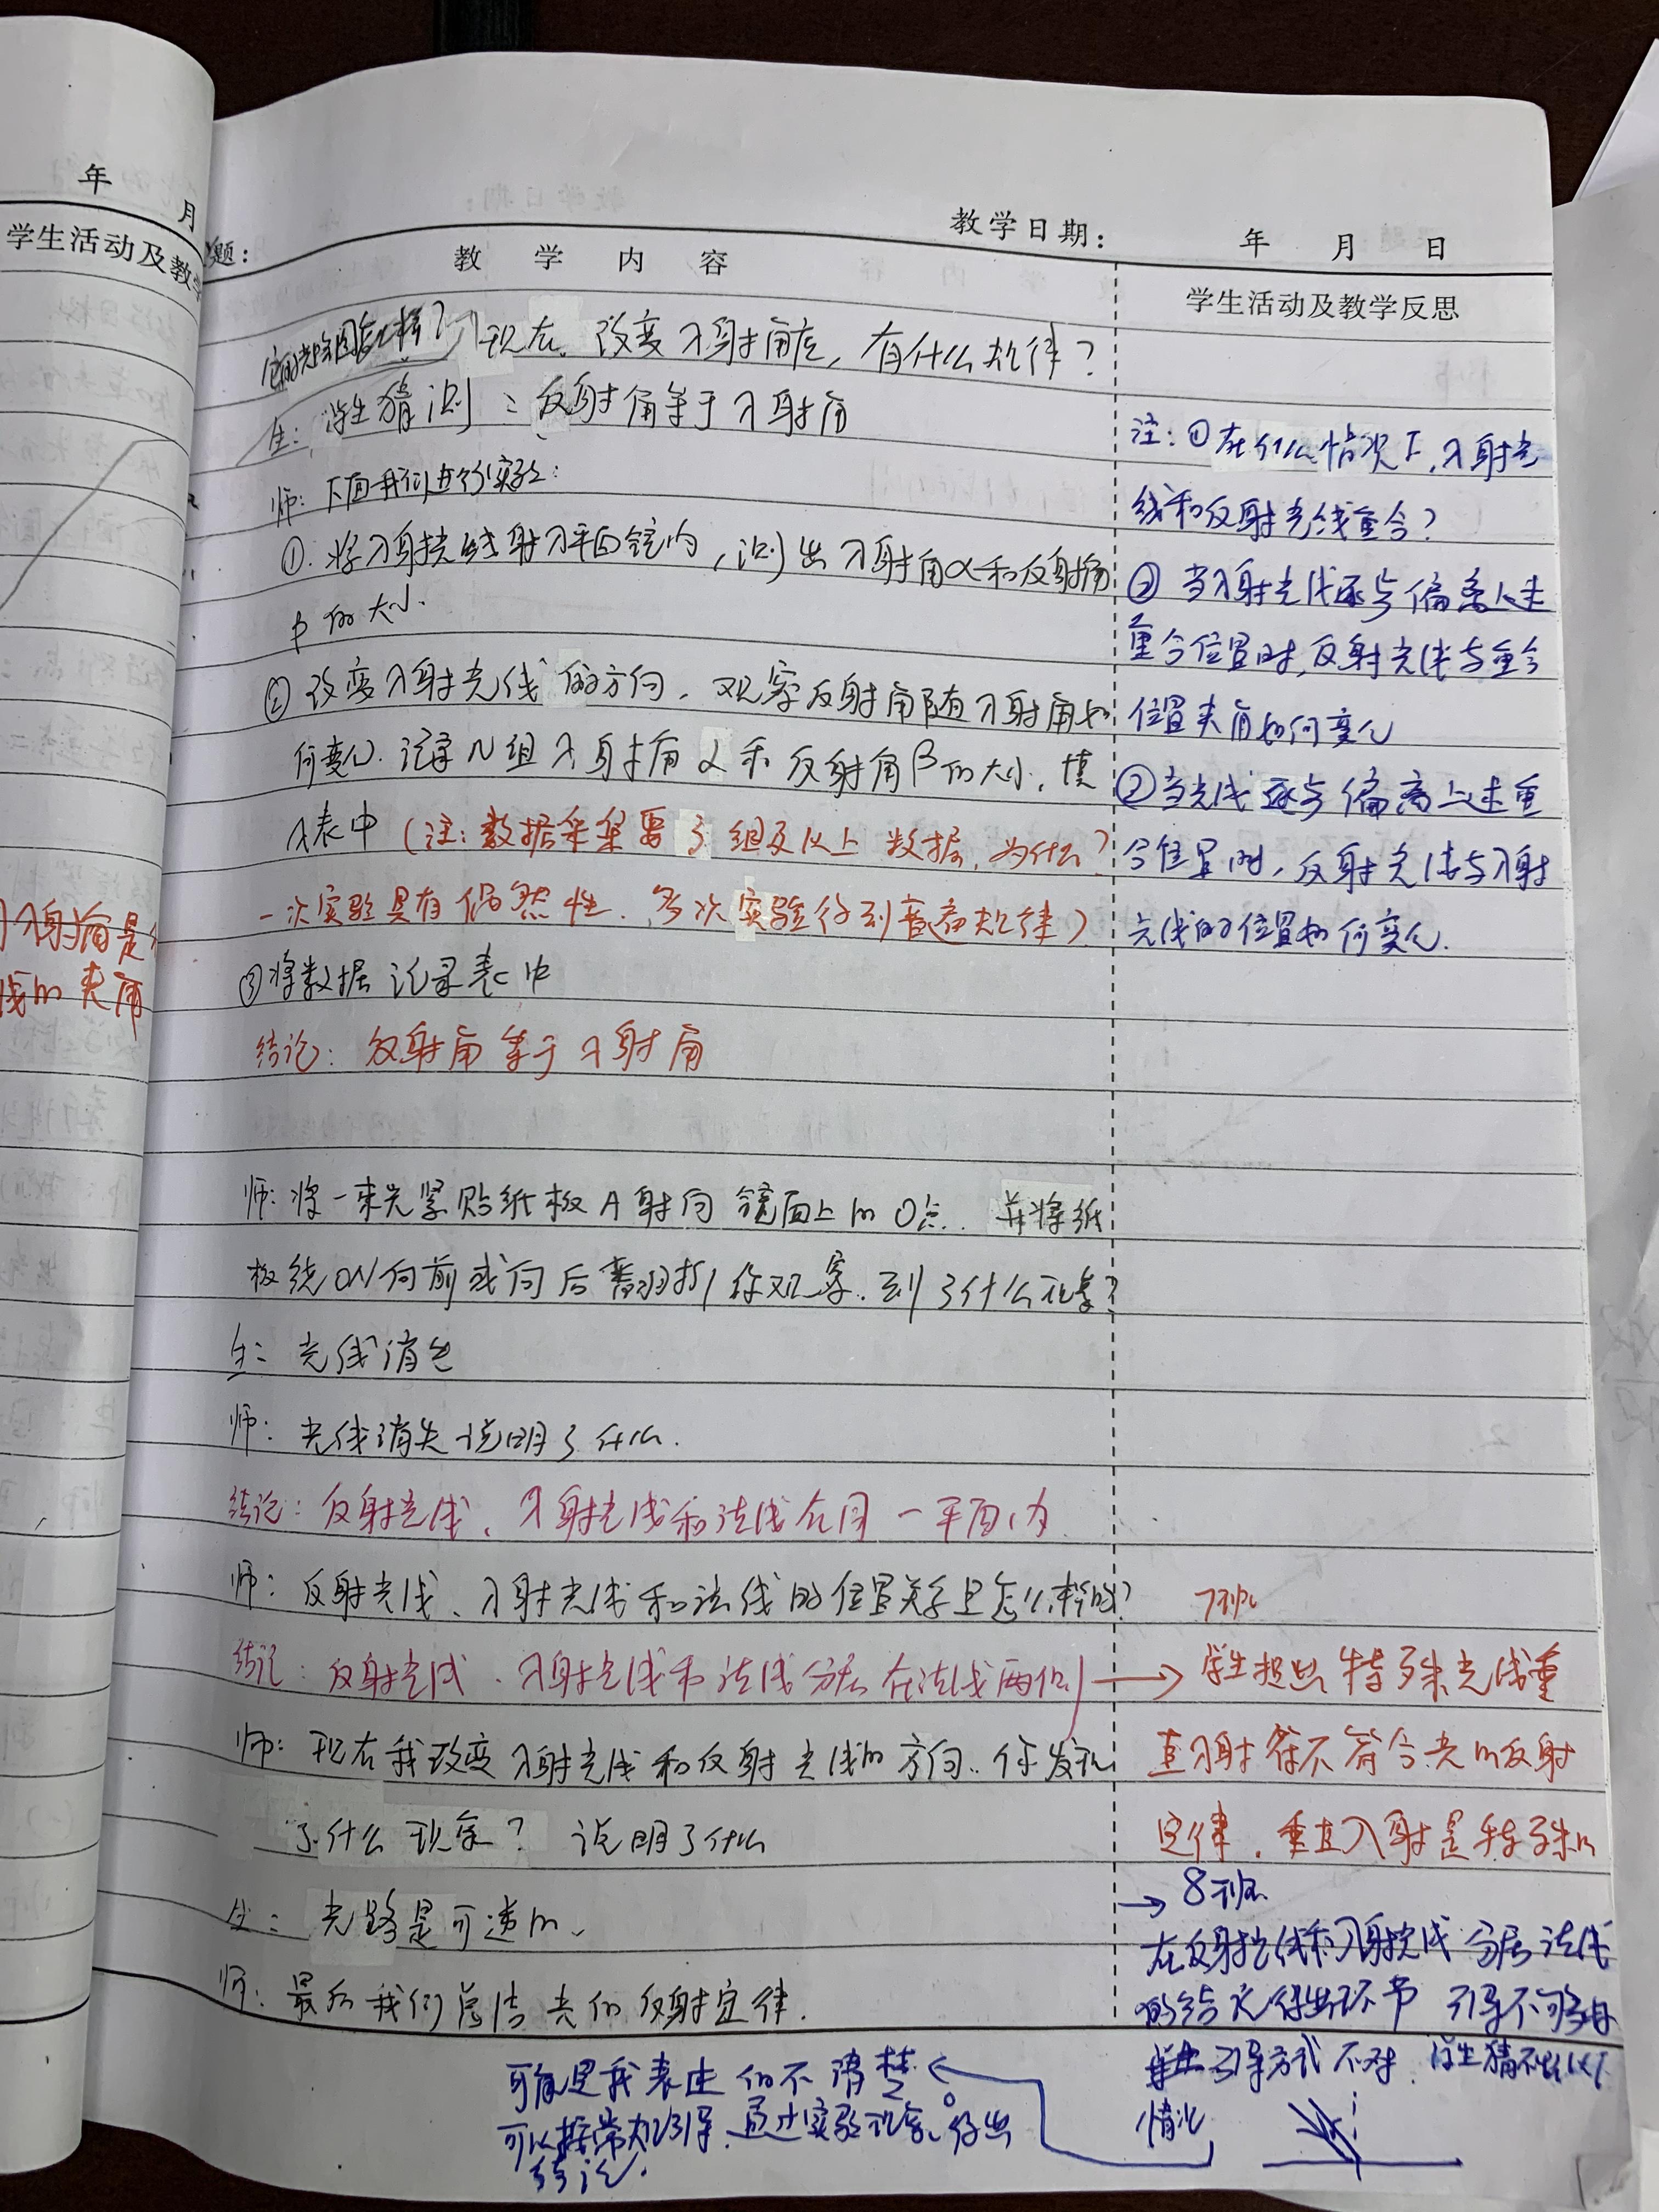 年
月
学生活动及教学
入射角是
线的夹角
题:
教学日期:
年 月 日
教 学 内 容
学生活动及教学反思
现在,改变入射角度,有什么规律?
生:学生猜测:反射角等于入射角
师:下面我们进行实验:
①.将入射光线射入平面镜内,测出入射角α和反射角
β的大小.
②改变入射光线的方向,观察反射角随入射角如
何变化.记录N组入射角α和反射角β的大小,填
入表中(注:数据采集要3组及以上数据,为什么?
一次实验具有偶然性,多次实验得到普遍规律)
③将数据记录表中
结论:反射角等于入射角
师:将一束光紧贴纸板A射向镜面上的O点.并将纸
板绕ON向前或向后翻折,你观察到了什么现象?
生:光线消失
师:光线消失说明了什么.
结论:反射光线、入射光线和法线在同一平面内
师:反射光线、入射光线和法线的位置关系是怎么样的?
结论:反射光线、入射光线和法线分居在法线两侧
师:现在我改变入射光线和反射光线的方向.你发现
了什么现象?说明了什么
生:光路是可逆的、
师:最后我们总结光的反射定律.
注:①在什么情况下,入射光
线和反射光线重合?
②当入射光线逐步偏离上述
重合位置时,反射光线与重合
位置夹角如何变化
②当光线逐步偏离上述重
合位置时,反射光线与入射
光线的位置如何变化.
7班
学生提出特殊光线垂
直入射符不符合光的反射
定律,垂直入射是特殊的
→8班
在反射光线和入射光线分居法线
的结论得出环节 引导不够
引导方式不对.学生猜不出以下
情况
可能是我表述的不清楚。
可以接常加引导,通过实验现象得出
结论.